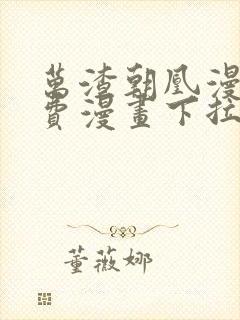 萬渣朝凰漫
費漫畫下拉
董薇娜